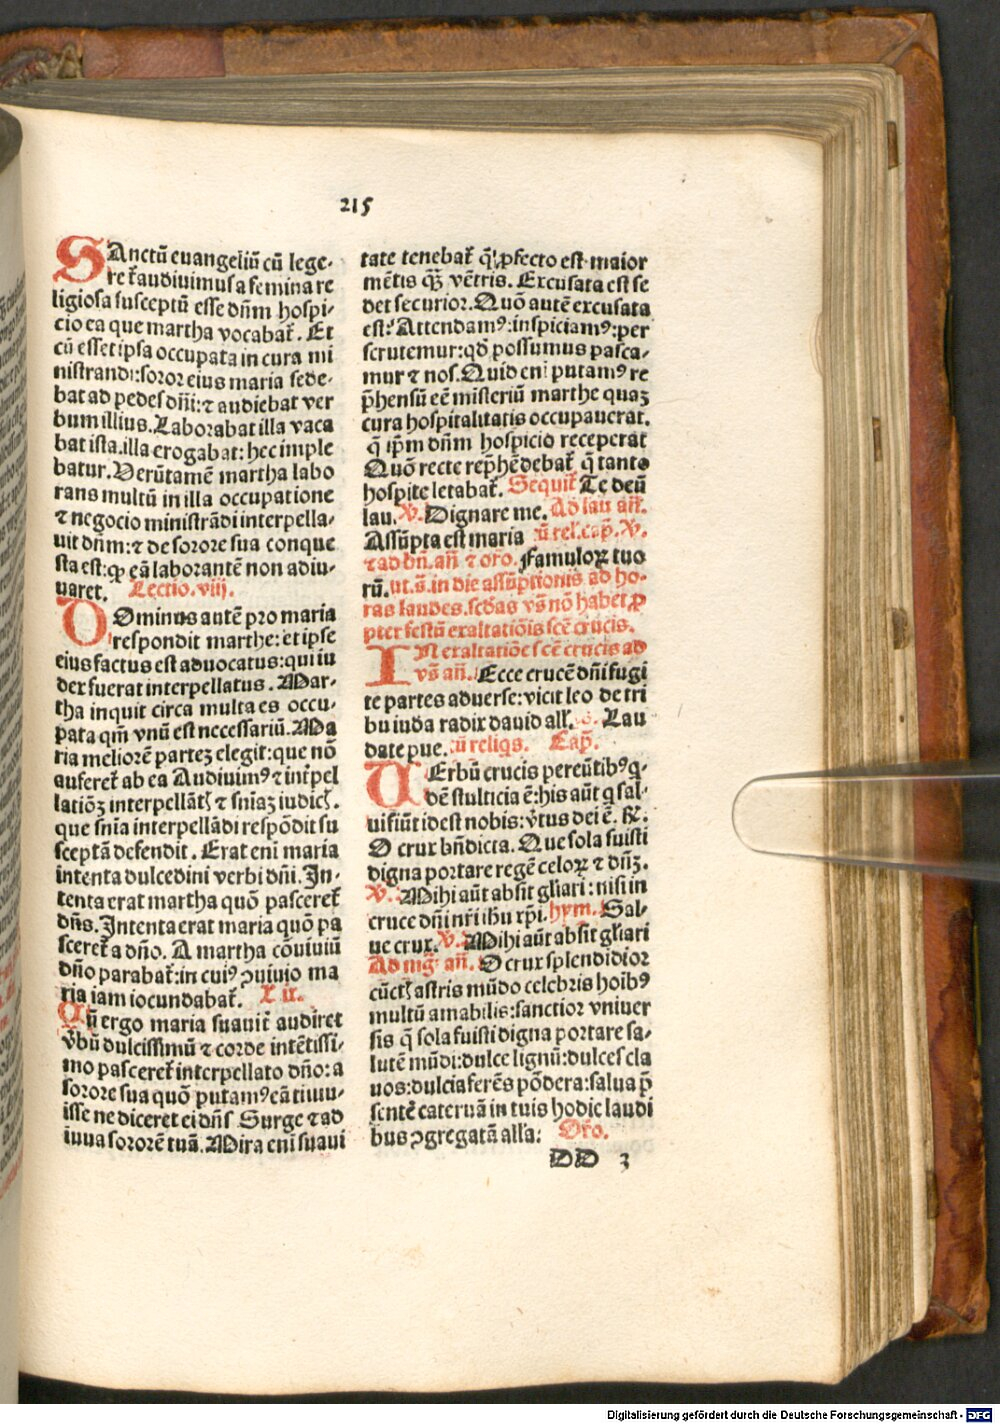 215
SAnctū euangeliū cū lege-
ret̃audiuimus a femina re
ligiosa susceptū esse dñm hospi-
cio ea que martha vocabat̃. Et
cū esset ipsa occupata in cura mi
nistrandi:soror eius maria sede-
bat ad pedes dñi:⁊ audiebat ver
bum illius. Laborabat illa vaca
bat ista.illa erogabat: hec imple
batur. Verūtamē martha labo
rans multū in illa occupatione
⁊ negocio ministrādi interpella-
uit dñm:⁊ de sorore sua conque
sta est:ꝙ eā laborantē non adiu-
uaret. Lectio.viij.
DOminus autē pro maria
respondit marthe: et ipse
eius factus est aduocatus:qui iu
dex fuerat interpellatus. Mar-
tha inquit circa multa es occu-
pata qm̃ vnū est necessariū. Ma
ria meliorē parteꝫ elegit:que nō
auferet̃ ab ea Audiuimꝰ ⁊ int̃pel
latiōꝫ interpellāt̃ ⁊ sñiaꝫ iudic̃.
que sñia interpellādi respōdit su
sceptā defendit. Erat eni maria
intenta dulcedini verbi dñi. In-
tenta erat martha quō pasceret̃
dñs. Intenta erat maria quō pa
sceret̃ a dño. A martha cōuiuiū
dño parabat̃:in cuiꝰ ꝯuiuio ma
ria iam iocundabat̃. L ix.
Qū ergo maria suauit̃ audiret
v̄bū dulcissimū ⁊ corde intētissi-
mo pasceret̃ interpellato dño: a
sorore sua quō putamꝰ eā timu-
isse ne diceret ei dñs Surge ⁊ ad
iuua sororē tuā. Mira eni suaui
tate tenebat̃ q̃ ꝓfecto est maior
mētis q̃ꝫ vētris. Excusata est se
det securior. Quō autē excusata
est? Attendamꝰ:inspiciamꝰ:per
scrutemur:qđ possumus pasca-
mur ⁊ nos. Quid eni putamꝰ re
p̃hensū eē misteriū marthe quaꝫ
cura hospitalitatis occupauerat.
q̃ ip̃m dñm hospicio receperat
Quō recte rep̃hēdebat̃ q̃ tanto
hospite letabat̃. Sequit̃ Te deū
lau. V̄. Dignare me. Ad lau añ.
Assūpta est maria cū rel. cap̄. V̄.
⁊ ad bñ. añ ⁊ oro. Famuloꝝ tuo
rū. ut.s̄. in die assūptionis ad ho-
ras laudes. scđas vs̄ nō habet ꝓ
pter festū exaltatiōis scē crucis.
IN exaltatiōe scē crucis ad
vs̄ añ. Ecce crucē dñi fugi
te partes aduerse: vicit leo de tri
bu iuda radix dauid all̃. Lau
date pue. cū reliqs. Cap̄.
VErbū crucis pereūtibꝰ q-
dē stulticia ē:his aūt q sal-
ui fiūt id est nobis: v̄tus dei ē. ℟.
O crux bñdicta. Que sola fuisti
digna portare regē celoꝝ ⁊ dñꝫ.
V̄. Mihi aūt absit gl̃iari: nisi in
cruce dñi nr̃i ihu xp̃i. hym. Sal-
ue crux. V̄. Mihi aūt absit gl̃iari
Ad mg̃ añ. O crux splendidior
cūct̃ astris mūdo celebris hoibꝰ
multū amabilis:sanctior vniuer
sis q̃ sola fuisti digna portare ta-
lentū mūdi:dulce lignū:dulces cla
uos:dulcia ferēs pōdera:salua p̃
sentē cateruā in tuis hodie laudi
bus ꝯgregatā alla: Oro.
DD 3
Digitalisierung gefördert durch die Deutsche Forschungsgemeinschaft - DFG